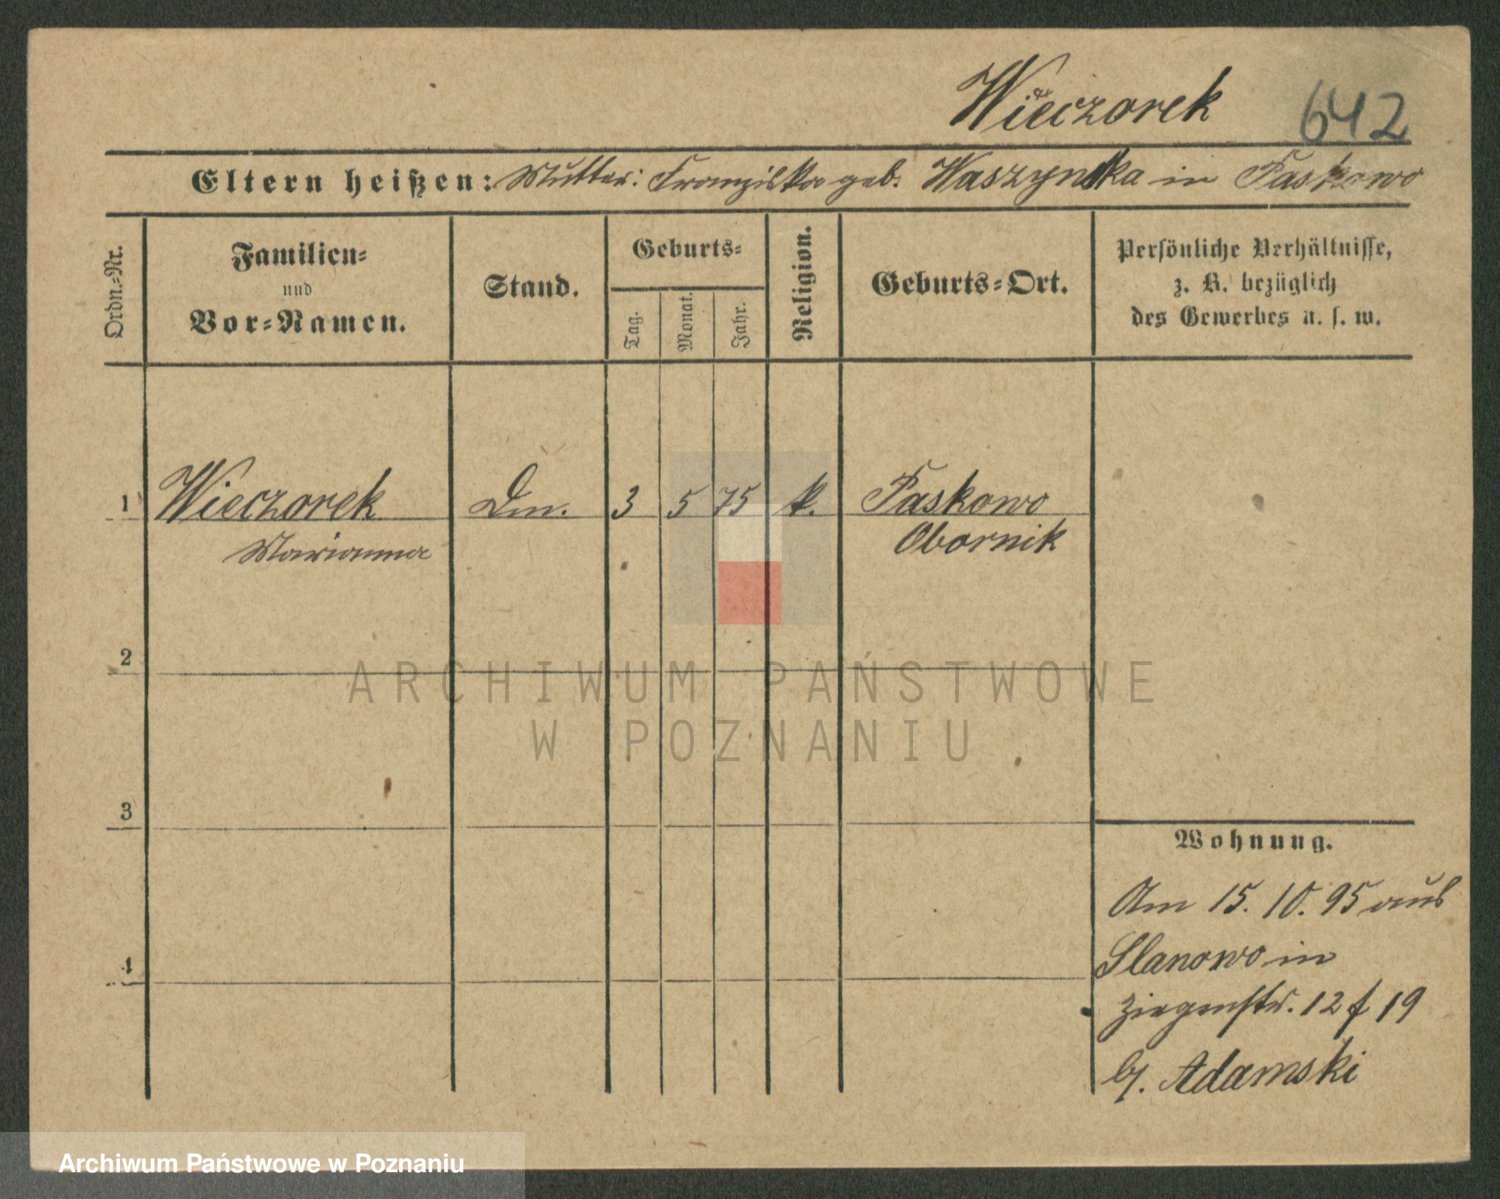 Wieczorek 642
Eltern heißen: Mutter: Franziska geb. Waszynska in Paskowo
Ordn.-Nr.
Familien-
und
Vor-Namen.
Stand.
Geburts-
Tag.
Monat.
Jahr.
Religion.
Geburts-Ort.
Persönliche Verhältnisse,
z. B. bezüglich
des Gewerbes u. s. w.
1 Wieczorek Dm. 3 5 75 k. Paskowo
Marianna Obornik
2
3
4
Wohnung.
Am 15. 10. 95 aus
Slanowo in
Ziegenstr. 12 f 19
b/. Adamski
ARCHIWUM PAŃSTWOWE
W POZNANIU
Archiwum Państwowe w Poznaniu